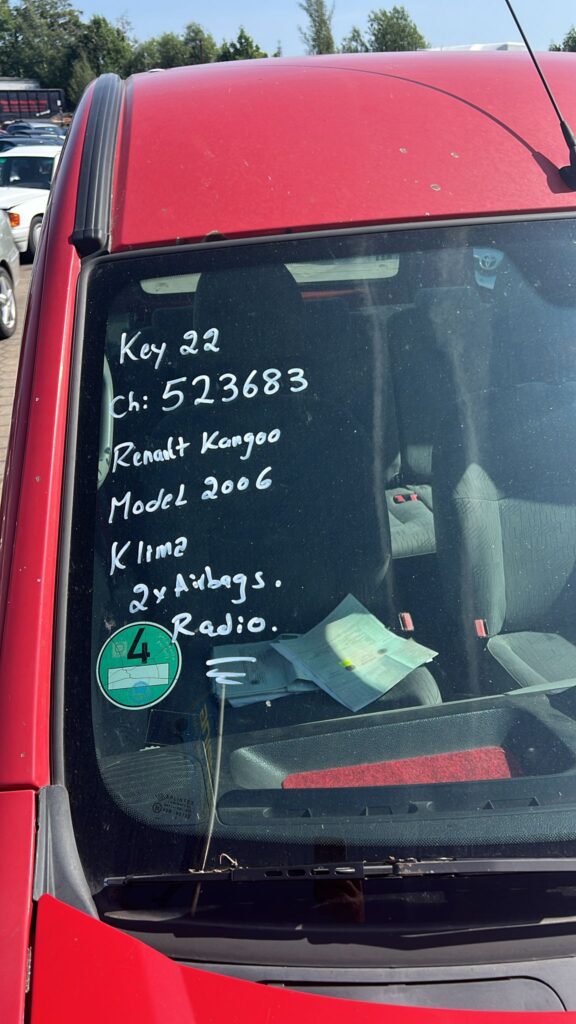 Key 22
Ch: 523683
Renault Kangoo
Model 2006
Klima
2x Airbags.
Radio.
4